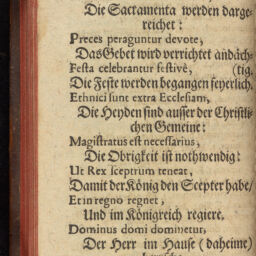 Die Sactamenta werden darge-
reichet:
Preces peraguntur devote,
Das Gebet wird verrichtet andäch-
Festa celebrantur festivè, (tig.
Die Feste werden begangen feyerlich,
Ethnici sunt extra Ecclesiam,
Die Heyden sind ausser der Christli-
chen Gemeine:
Magistratus est necessarius,
Die Obrigkeit ist nothwendig:
Ut Rex sceptrum teneat,
Damit der König den Scepter habe/
Et in regno regnet,
Und im Königreich regiere.
Dominus domi dominetur,
Der Herr im Hause (daheime)